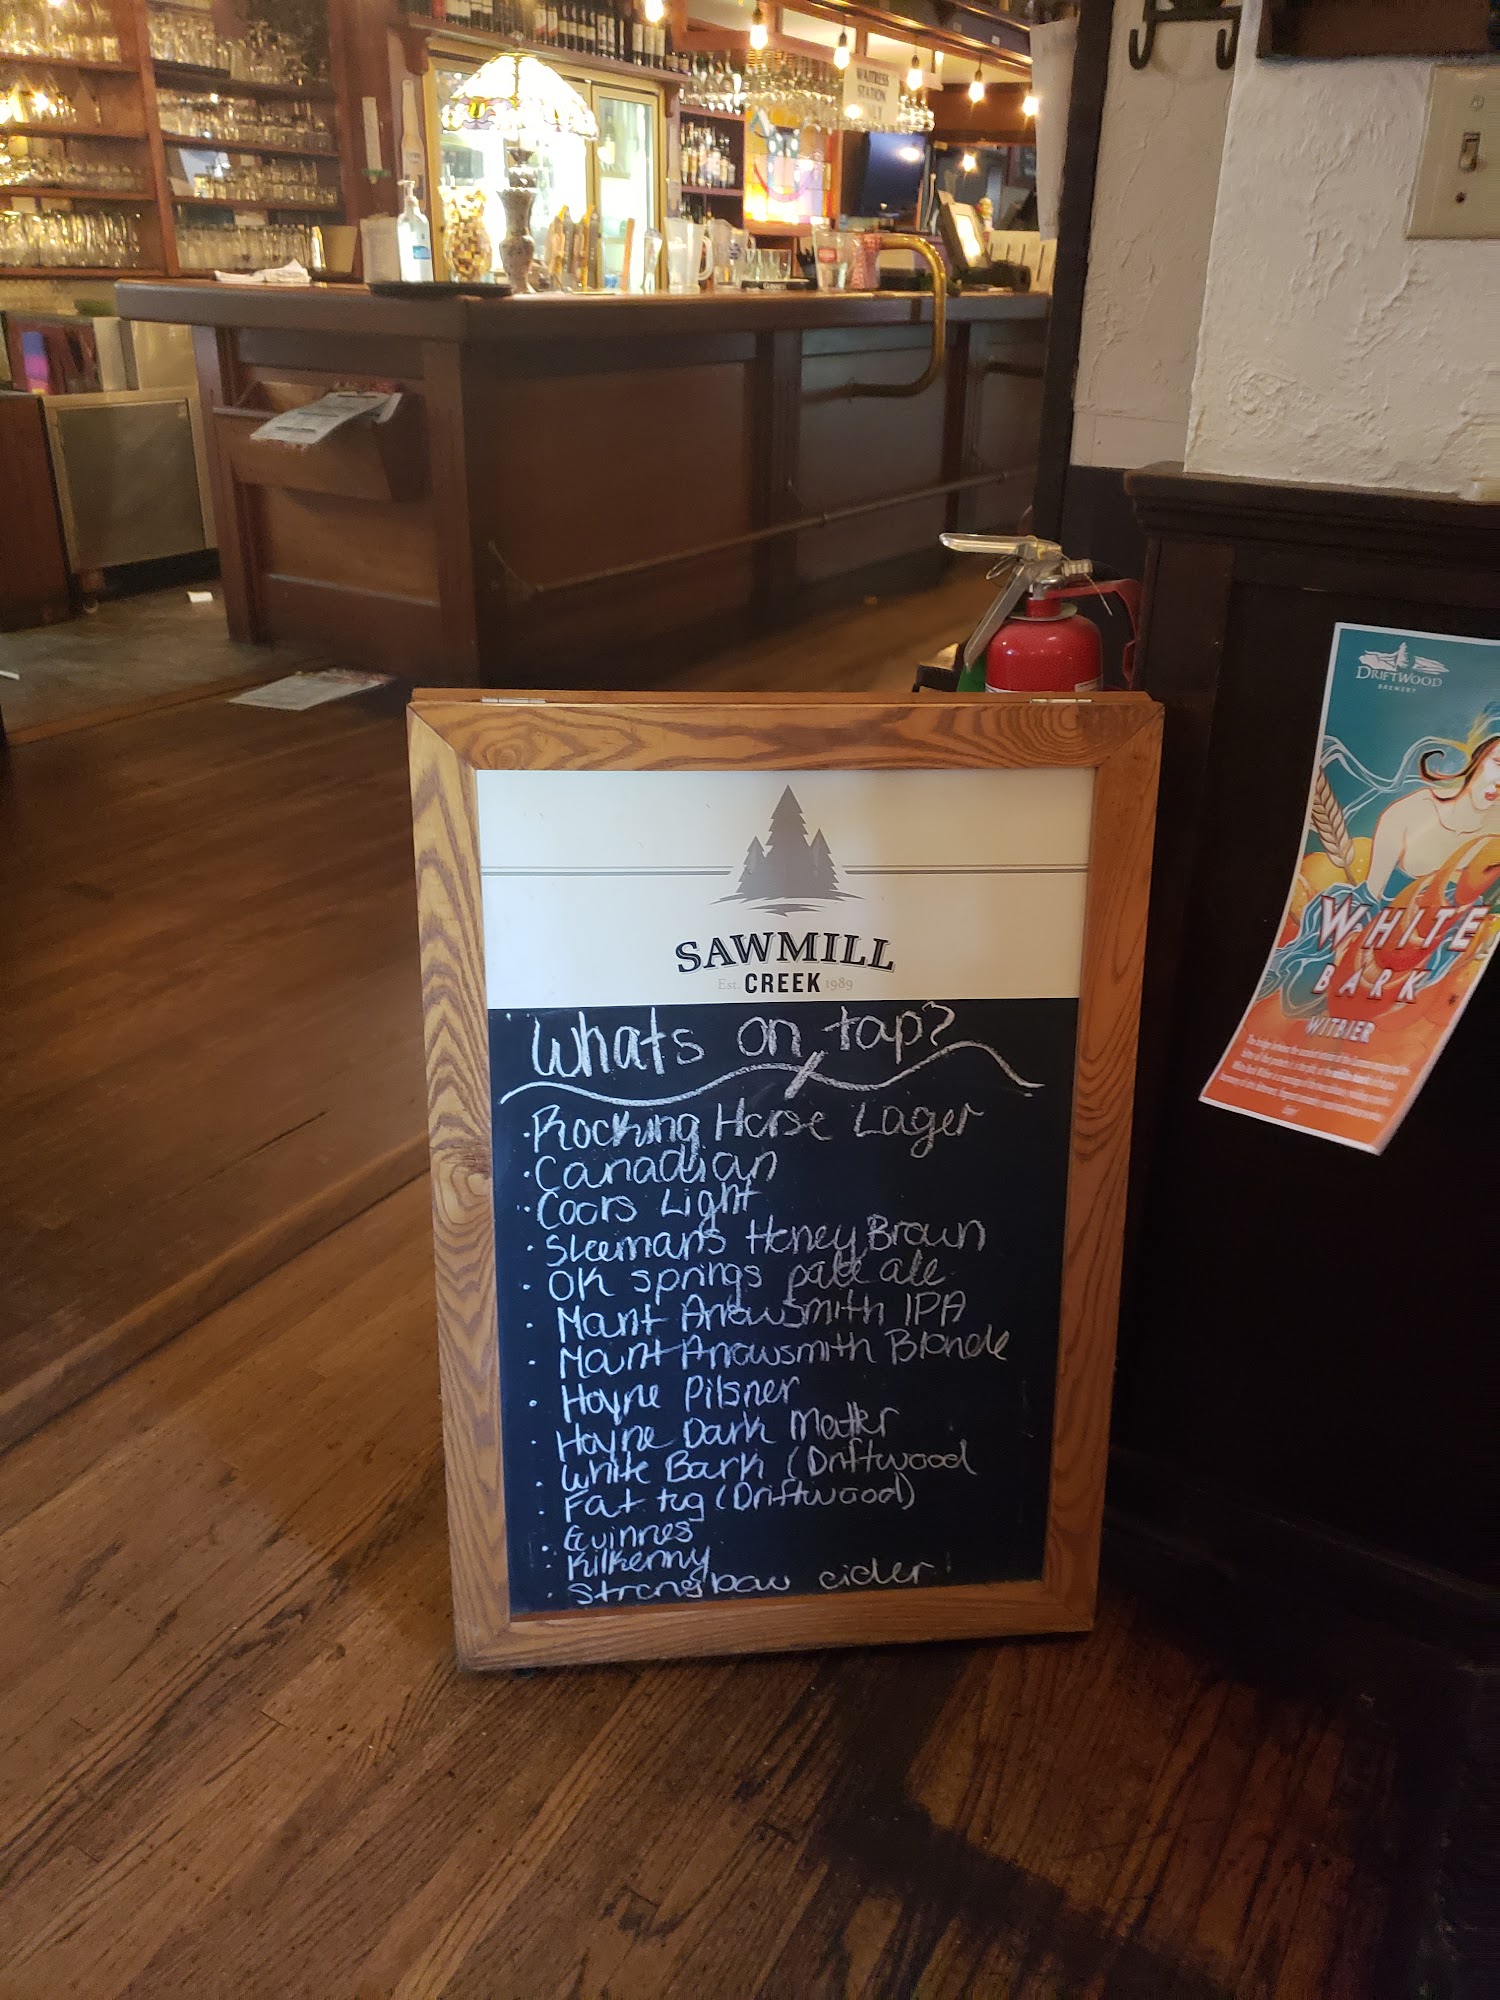 WAITRESS
STATION
GUINNESS
DRIFTWOOD
BREWERY
WHITE
BARK
WITBIER
SAWMILL
Est. CREEK 1989
Whats on tap?
· Rocking Horse Lager
· Canadian
· Coors Light
· Sleemans Honey Brown
· OK springs pale ale
· Mount Arrowsmith IPA
· Mount Arrowsmith Blonde
· Hoyne Pilsner
· Hoyne Dark Matter
· White Bark (Driftwood
· Fat tug (Driftwood)
· Guinnes
· Kilkenny
· Strongbow cider!